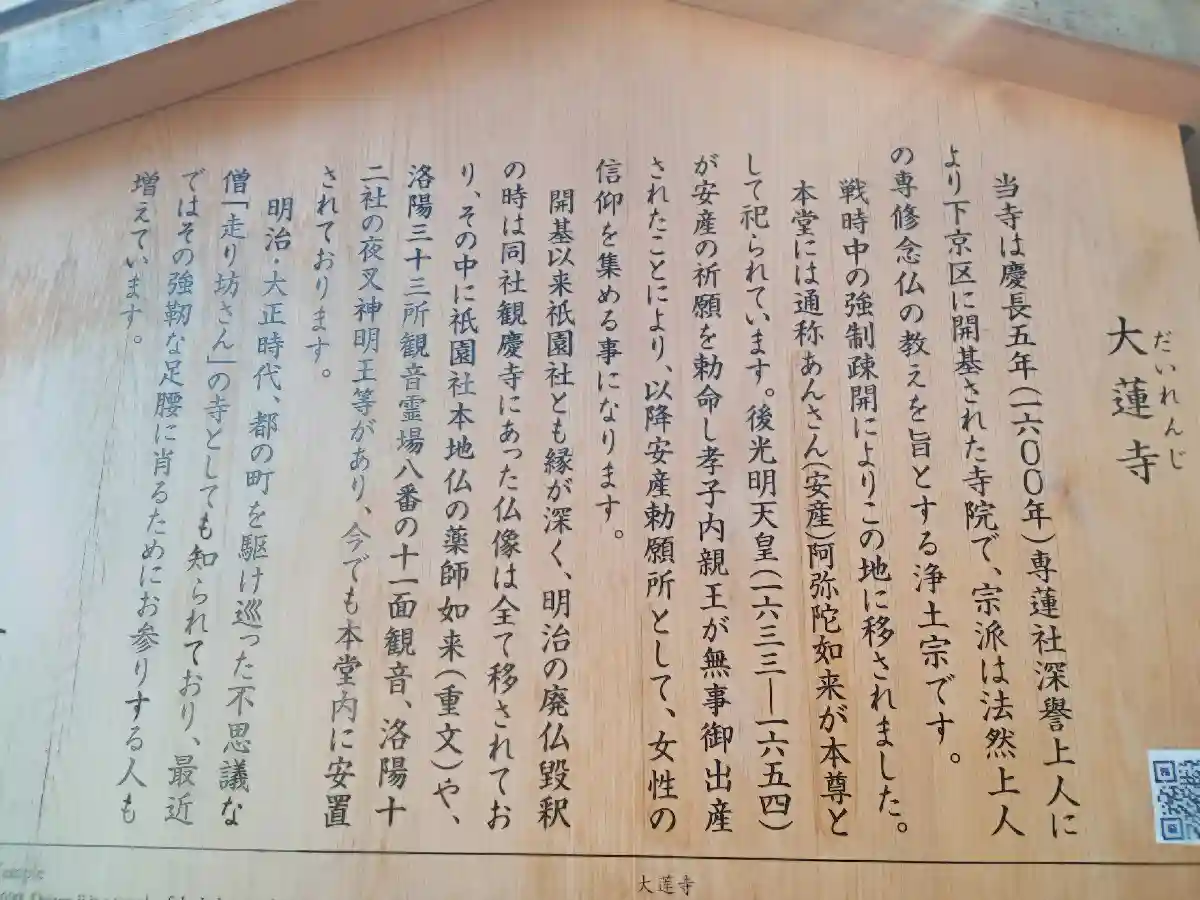 大蓮寺
だいれんじ
当寺は慶長五年(一六〇〇年)専蓮社深誉上人に
より下京区に開基された寺院で、宗派は法然上人
の専修念仏の教えを旨とする浄土宗です。
戦時中の強制疎開によりこの地に移されました。
本堂には通称あんさん(安産)阿弥陀如来が本尊と
して祀られています。後光明天皇(一六三三―一六五四)
が安産の祈願を勅命し孝子内親王が無事御出産
されたことにより、以降安産勅願所として、女性の
信仰を集める事になります。
開基以来祇園社とも縁が深く、明治の廃仏毀釈
の時は同社観慶寺にあった仏像は全て移されてお
り、その中に祇園社本地仏の薬師如来(重文)や、
洛陽三十三所観音霊場八番の十一面観音、洛陽十
二社の夜叉神明王等があり、今でも本堂内に安置
されております。
明治・大正時代、都の町を駆け巡った不思議な
僧「走り坊さん」の寺としても知られており、最近
ではその強靭な足腰に肖るためにお参りする人も
増えています。
大蓮寺